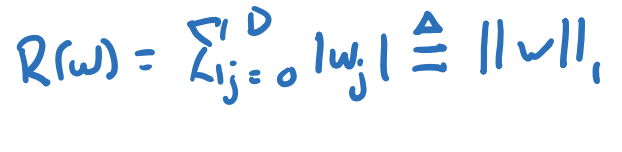 R(w) = ∑_{j=0}^{D} |w_j| ≜ ||w||_1